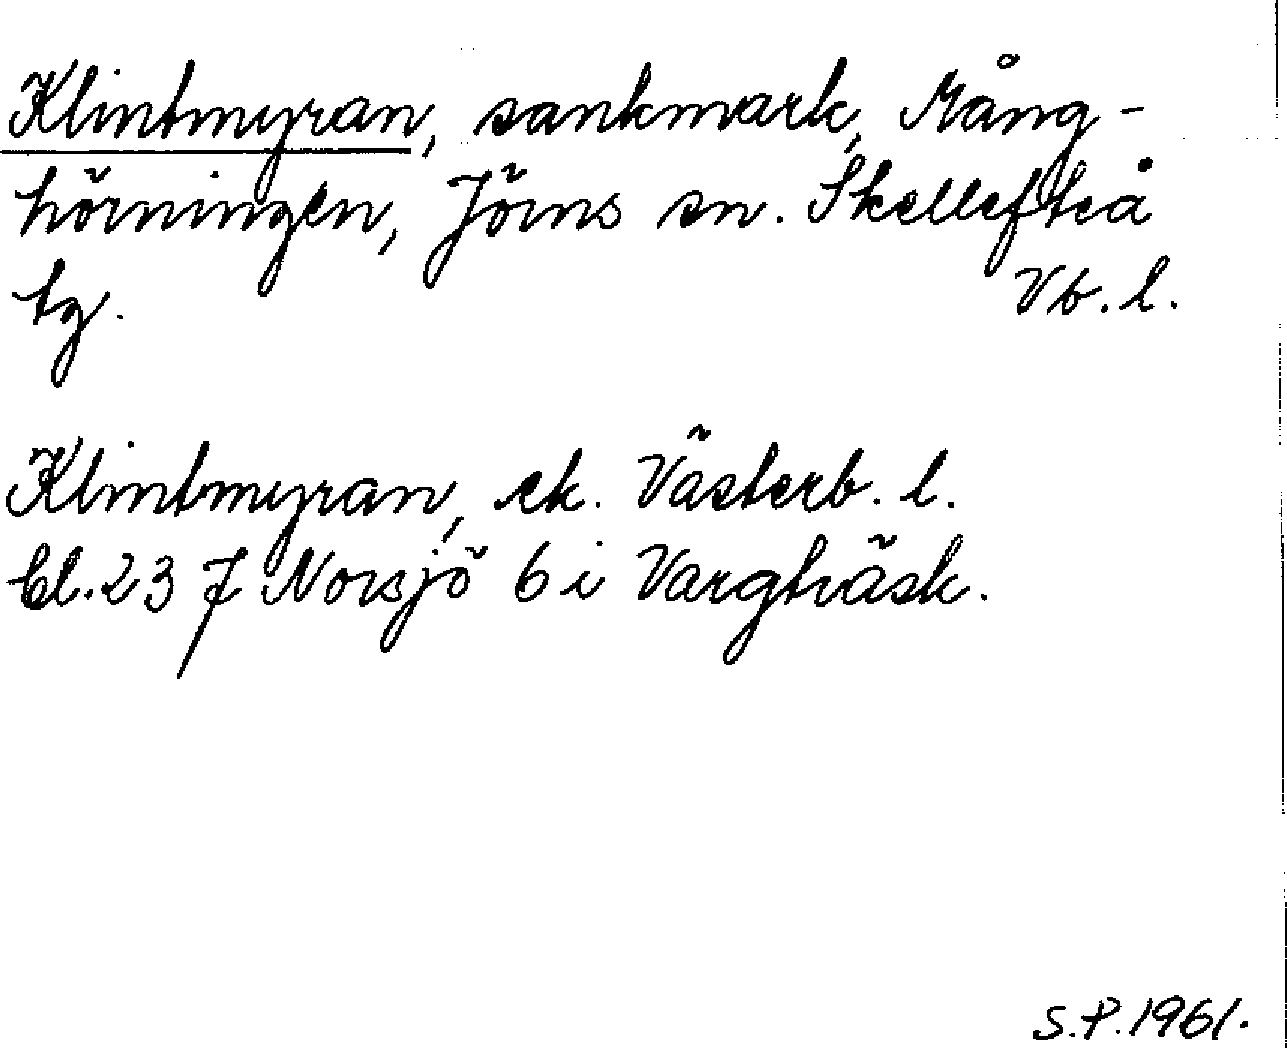 Klintmyran, sankmark, Mång-
hörningen, Jörns sn. Skellefteå
tg. Vb. l.
Klintmyran, ek. Västerb. l.
bl. 23 J Norsjö 6 i Vargträsk.
S.P. 1961.